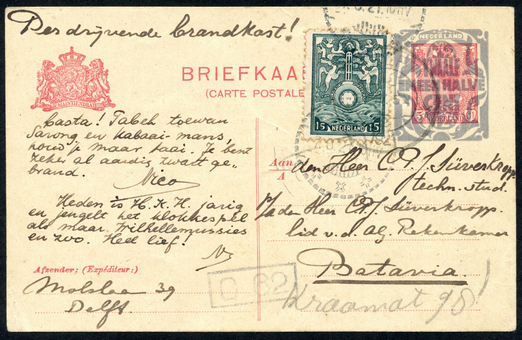 Per drijvende brandkast!
BRIEFKAA
(CARTE POSTALE
JE MAINTIENDRAI
15 NEDERLAND 15
NEDERLAND
HALVE
Casta! Tabeh toewan
Sarong en kabaai-mans
hoed je maar haai. Je bent
zeker al aardig zwart ge-
brand.
Nico
Heden is H.K.H. jarig
en jengelt het klokkespel
als maar Wilhelmussies
en zoo. Heel lief!
N
Aan
A
den Heer C.P.J. Süverkrop
techn. stud.
p/a den Heer C.P.J. Süverkropp.
lid v. d. Alg. Rekenkamer
Batavia.
Afzender: (Expéditeur:)
Molslaan 39
Delft.
O 62
Kramat 98!